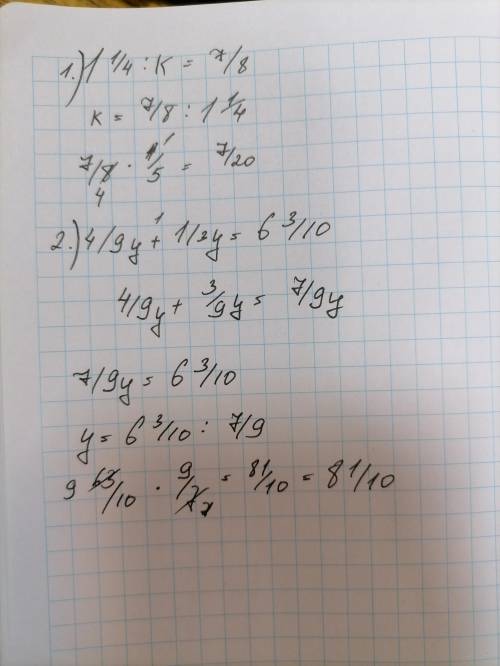 1.) 1 1/4 : K = 7/8
K = 7/8 : 1 1/4
7/8 · 1/5 = 7/20
4
2.) 4/9y + 1/3y = 6 3/10
4/9y + 3/9y = 7/9y
7/9y = 6 3/10
y = 6 3/10 : 7/9
9 63/10 · 9/7 = 81/10 = 8 1/10